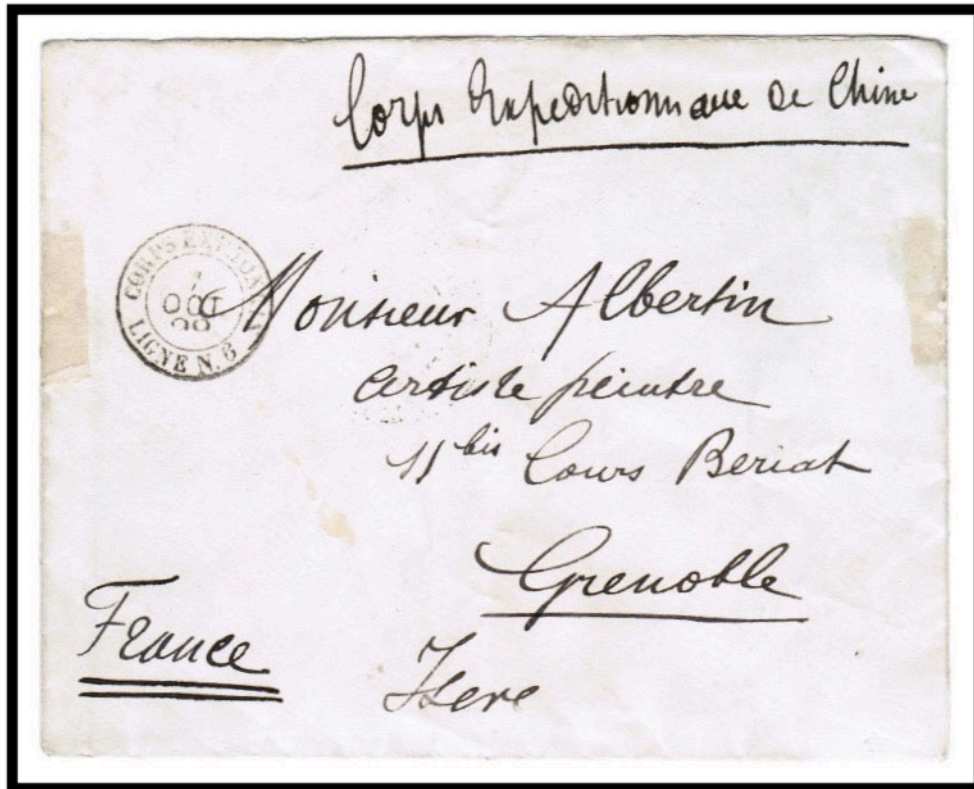 Corps Expeditionnaire de Chine
CORPS EXP.
OCT
LIGNE N. 6
Monsieur Albertin
artiste peintre
11 bis Cours Beriat
Grenoble
France
Isere